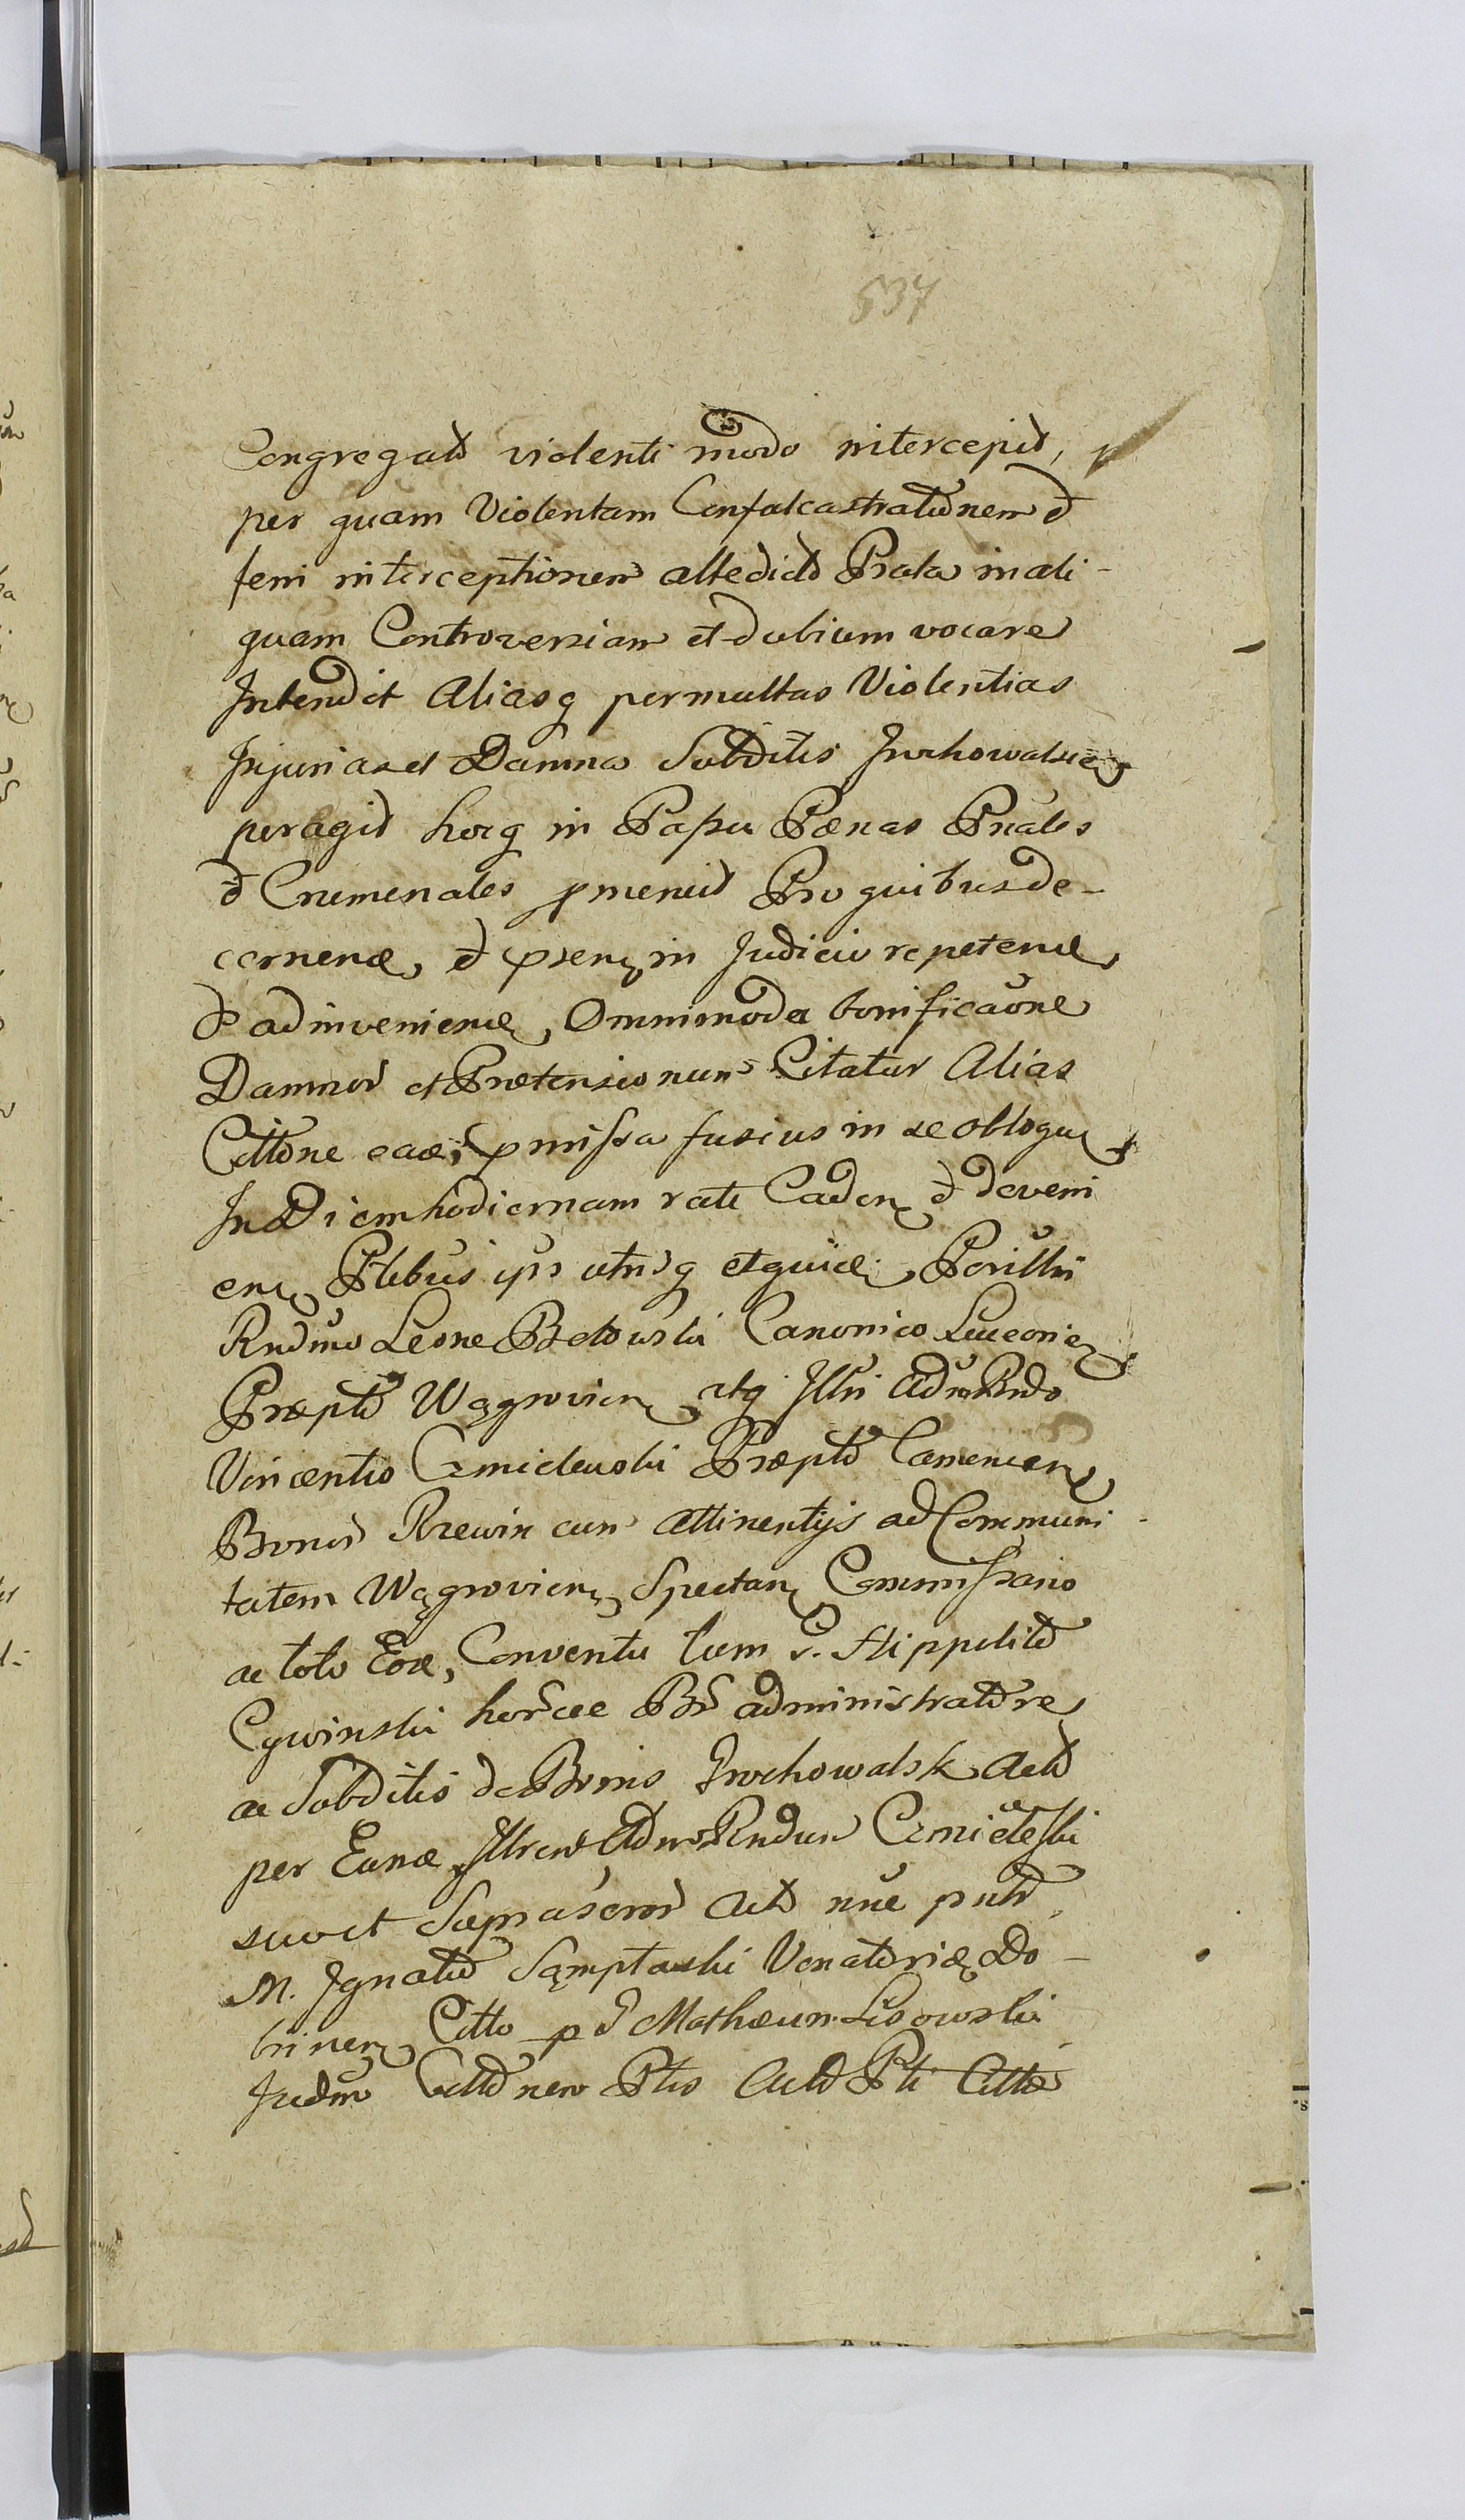 537
Congregatt violenti modo intercepit,
per quam Violentam Confalcastrationem et
feni interceptionem attedictt Prata in ali-
quam Controversiam et dubium vocare
Intendit Aliasq permultas Violentias
Injurias et Damna Subditis
peragit hocq in Passu Pœnas Pnales
et Criminales pmeruit Pro quibus de-
cernen et psen in Judicio repeten
et adinvenien, Omnimoda bonificaone
Damnor et Prætensionum Citatur Alias
Cittone eaoe, pmissa fusius in se obloquen
In Diem hodiernam rate Caden et deveni
en Ptibus ips utrisq et quidem Perillri
Rndmo Leone Canonico Luceorien
Præptto Wągrovien atq Illri Adm Rndo
Vincentio Præptto
Bonor cum attinentijs ad Communi-
tatem Wągrovien Spectan Commissario
ac toto Eoe, Conventu tum G. Hippolitto
Cywinski horce Br administratore
ac Subditis de Bonis Actt
per Eunde Illrem Adm Rndum
suo et Suprascror Actt nue pntt
M. Ignatio Venatorid Do-
brinen Citto p G Mathæum Lisowski
Judm Cittonem Ptis Actt Pti Citto